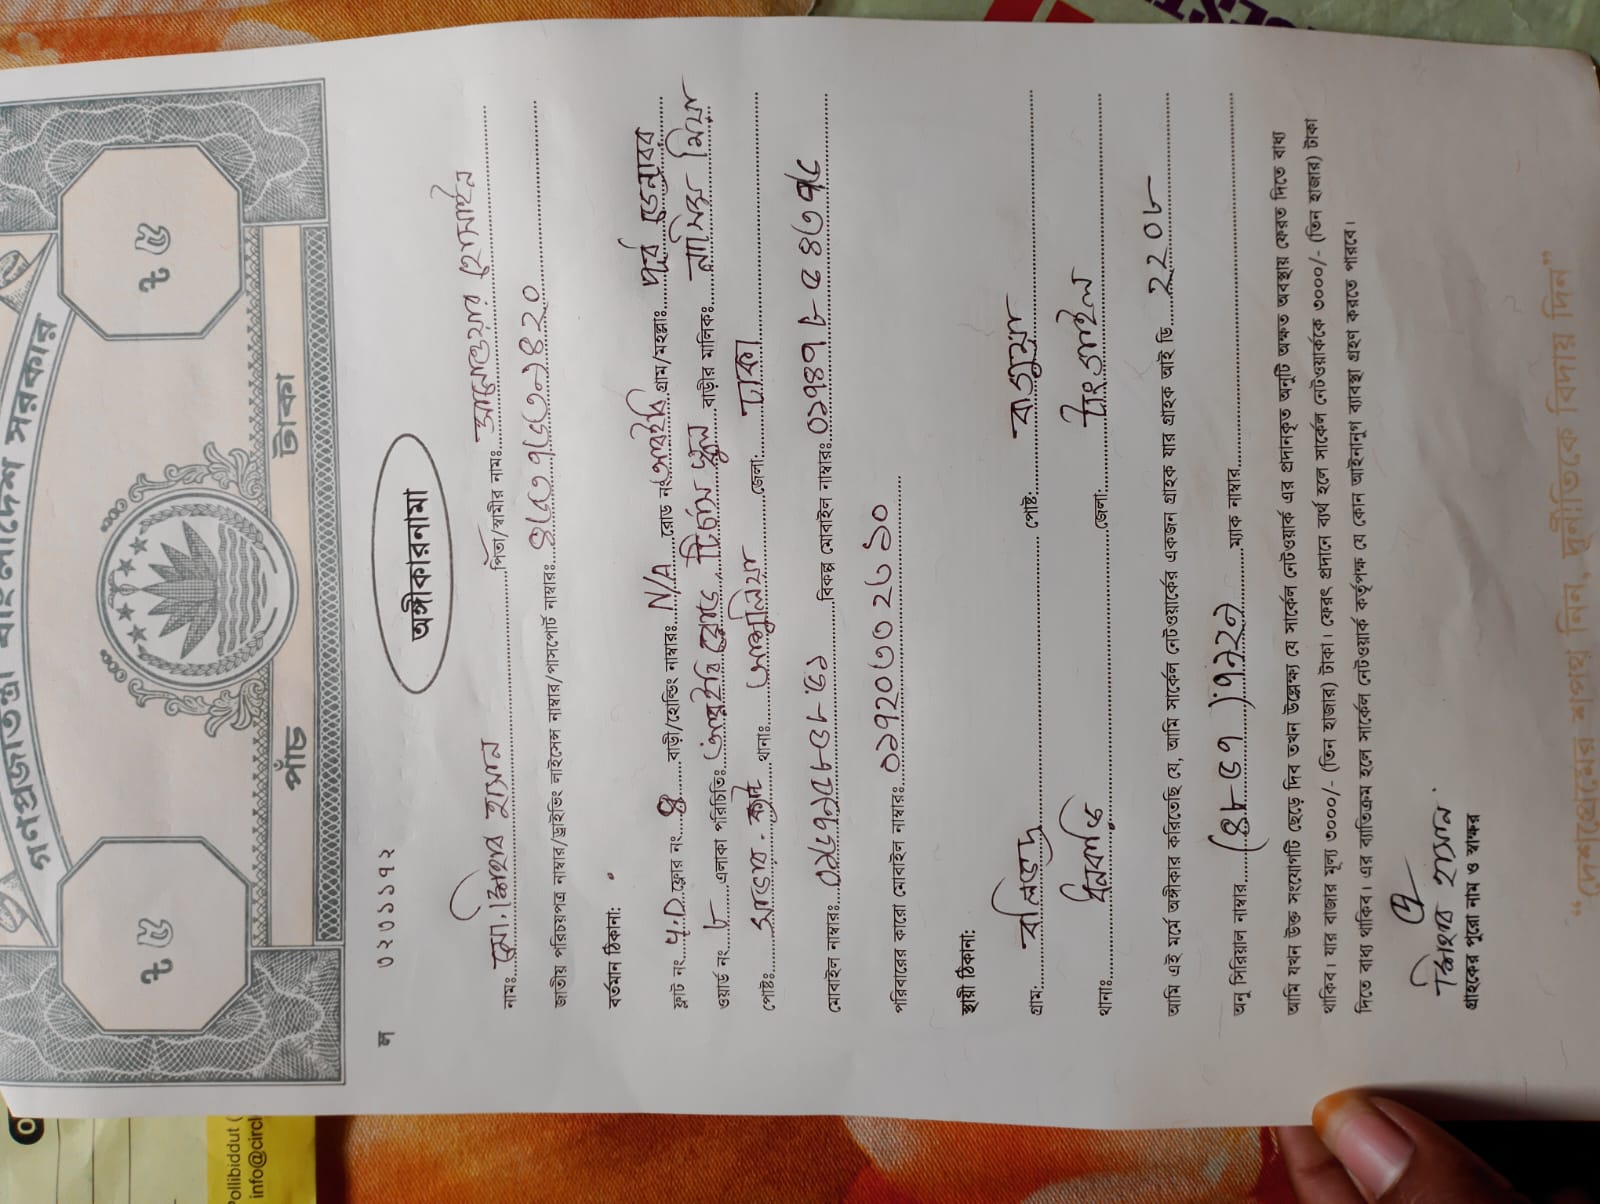 গণপ্রজাতন্ত্রী বাংলাদেশ সরকার
৳ ৫
৳ ৫
পাঁচ টাকা
ল ৩২৩১১৭২
অঙ্গীকারনামা
নামঃ মো. মিহাব হাসান পিতা/স্বামীর নাম: আনোয়ার হোসাইন
জাতীয় পরিচয়পত্র নাম্বার/ড্রাইভিং লাইসেন্স নাম্বার/পাসপোর্ট নাম্বার:
বর্তমান ঠিকানা:
ফ্লাট নং ফ্লোর নং ৪ বাড়ী/হোল্ডিং নাম্বারঃ N/A রোড নং আরইবি গ্রাম/মহল্লা: পূর্ব ডেন্ডাবর
ওয়ার্ড নং ৮ এলাকা পরিচিতি: আরইবি রোড, স্কুল বাড়ীর মালিক: নাসির মিয়া
পোষ্টঃ সাভার থানাঃ আশুলিয়া জেলা: ঢাকা
মোবাইল নাম্বারঃ বিকল্প মোবাইল নাম্বারঃ
পরিবারের কারো মোবাইল নাম্বারঃ ০১৭২০৩৩২৬১০
স্থায়ী ঠিকানা:
গ্রাম: বলিভদ্র পোষ্ট:
থানাঃ ধনবাড়ি জেলা: টাংগাইল
আমি এই মর্মে অঙ্গীকার করিতেছি যে, আমি সার্কেল নেটওয়ার্কের একজন গ্রাহক যার গ্রাহক আই ডি ২২০৮
অনু সিরিয়াল নাম্বার ম্যাক নাম্বার
আমি যখন উক্ত সংযোগটি ছেড়ে দিব তখন উল্লেক্ষ্য যে সার্কেল নেটওয়ার্ক এর প্রদানকৃত অনুটি অক্ষত অবস্থায় ফেরত দিতে বাধ্য
থাকিব। যার বাজার মূল্য ৩০০০/- (তিন হাজার) টাকা। ফেরৎ প্রদানে ব্যর্থ হলে সার্কেল নেটওয়ার্ককে ৩০০০/- (তিন হাজার) টাকা
দিতে বাধ্য থাকিব। এর ব্যাতিক্রম হলে সার্কেল নেটওয়ার্ক কর্তৃপক্ষ যে কোন আইনানুগ ব্যাবস্থা গ্রহণ করতে পারবে।
মিহাব হাসান
গ্রাহকের পুরো নাম ও স্বাক্ষর
“দেশপ্রেমের শপথ নিন, দুর্নীতিকে বিদায় দিন”
Pollibiddut (
info@circl